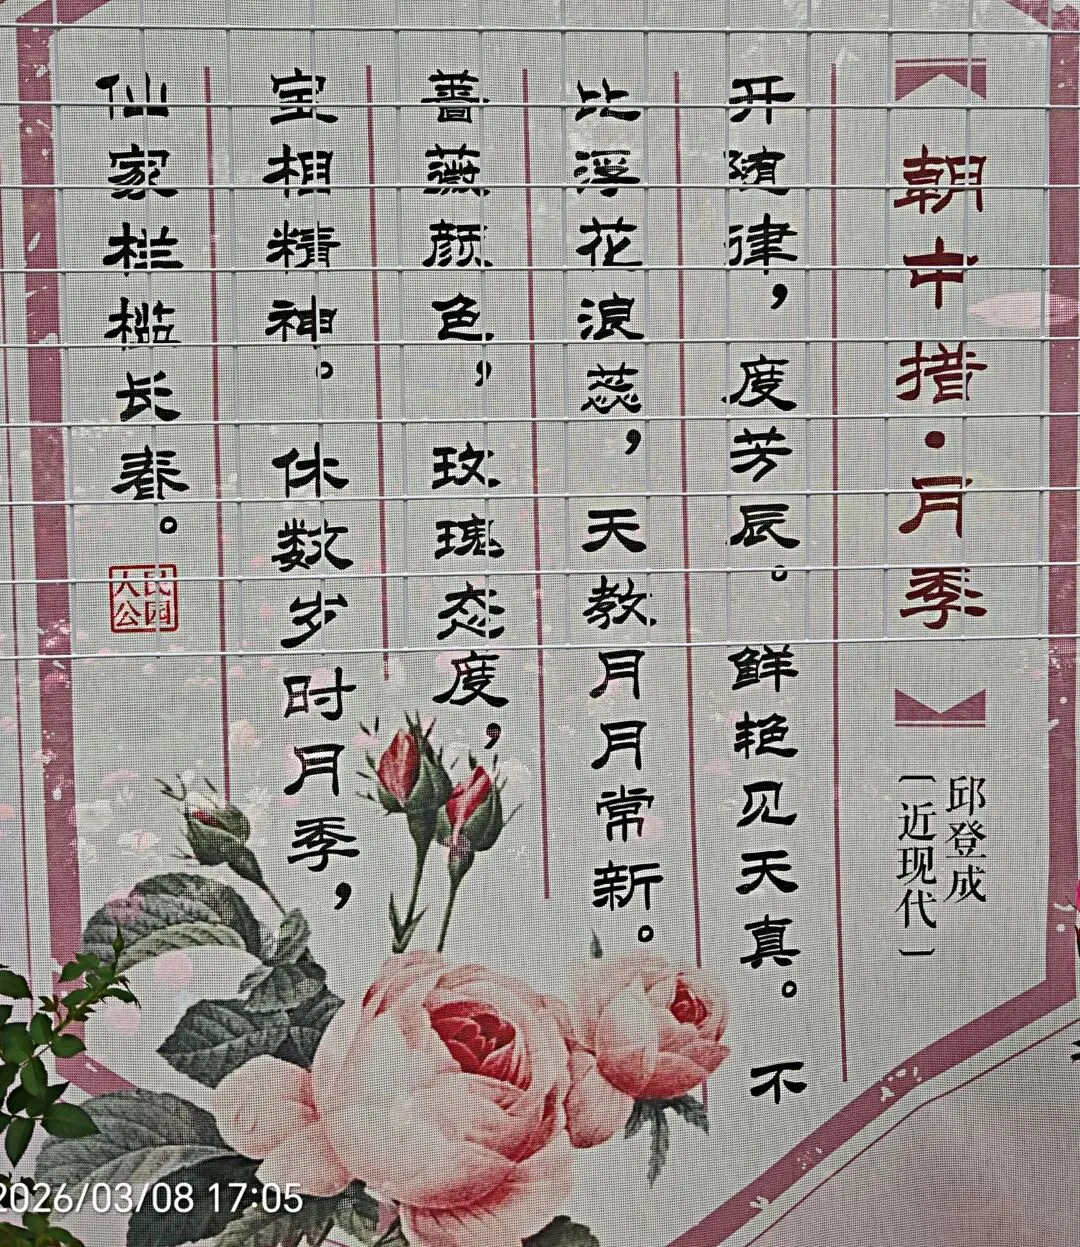 朝中措·月季
邱登成
〔近现代〕
开随律，度芳辰。鲜艳见天真。不
比浮花浪蕊，天教月月常新。
蔷薇颜色，玫瑰态度，
宝相精神。休数岁时月季，
仙家栏槛长春。
人民
公园
2026/03/08 17:05